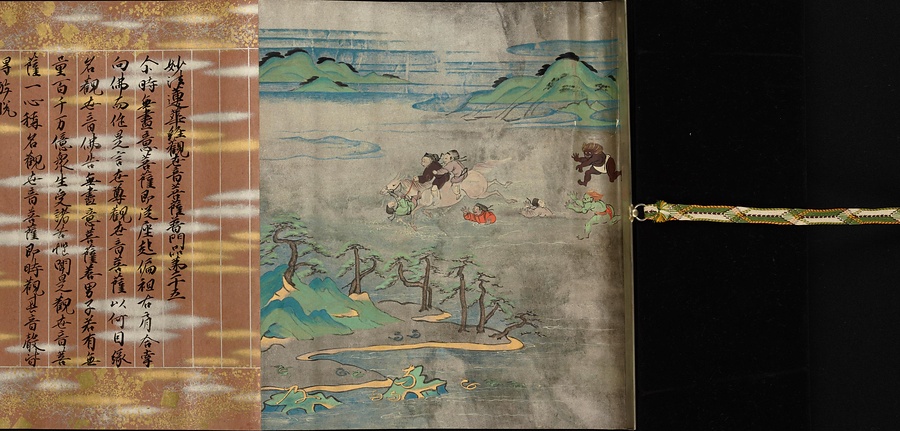 妙法蓮華経觀世音菩薩普門品第二十五
尒時無盡意菩薩即従座起偏袒右肩合掌
向佛而作是言世尊觀世音菩薩以何因緣
名觀世音佛告無盡意菩薩善男子若有無
量百千万億衆生受諸苦惱聞是觀世音菩
薩一心稱名觀世音菩薩即時觀其音聲皆
得解脱